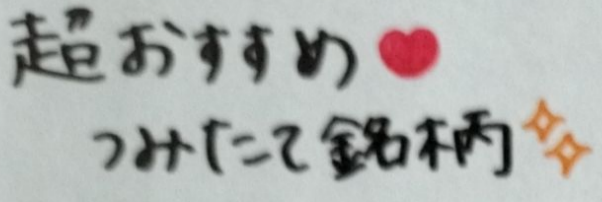 超おすすめ❤
つみたて銘柄✨